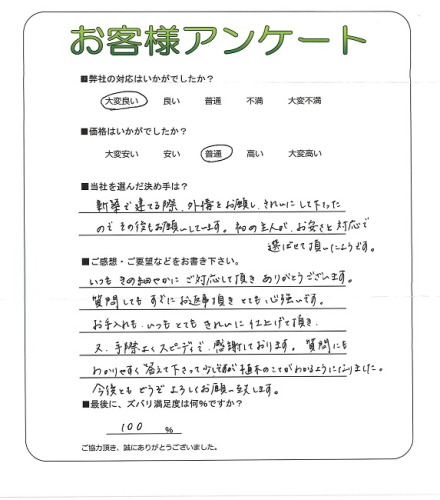 お客様アンケート
■弊社の対応はいかがでしたか?
大変良い 良い 普通 不満 大変不満
■価格はいかがでしたか?
大変安い 安い 普通 高い 大変高い
■当社を選んだ決め手は?
新築で建てる際、外構をお願いし、きれいにして下さった
のでその後もお願いしています。和の主人が、お安さと対応で
選ばせて頂いたようです。
■ご感想・ご要望などをお書き下さい。
いつもきめ細やかにご対応して頂きありがとうございます。
質問してもすぐにお返事頂きとても心強いです。
お手入れも、いつもとてもきれいに仕上げて頂き、
又、手際よくスピーディで、感謝しております。質問にも
わかりやすく答えて下さって少しずつ植木のことがわかるようになりました。
今後ともどうぞよろしくお願い致します。
■最後に、ズバリ満足度は何%ですか?
100 %
ご協力頂き、誠にありがとうございました。